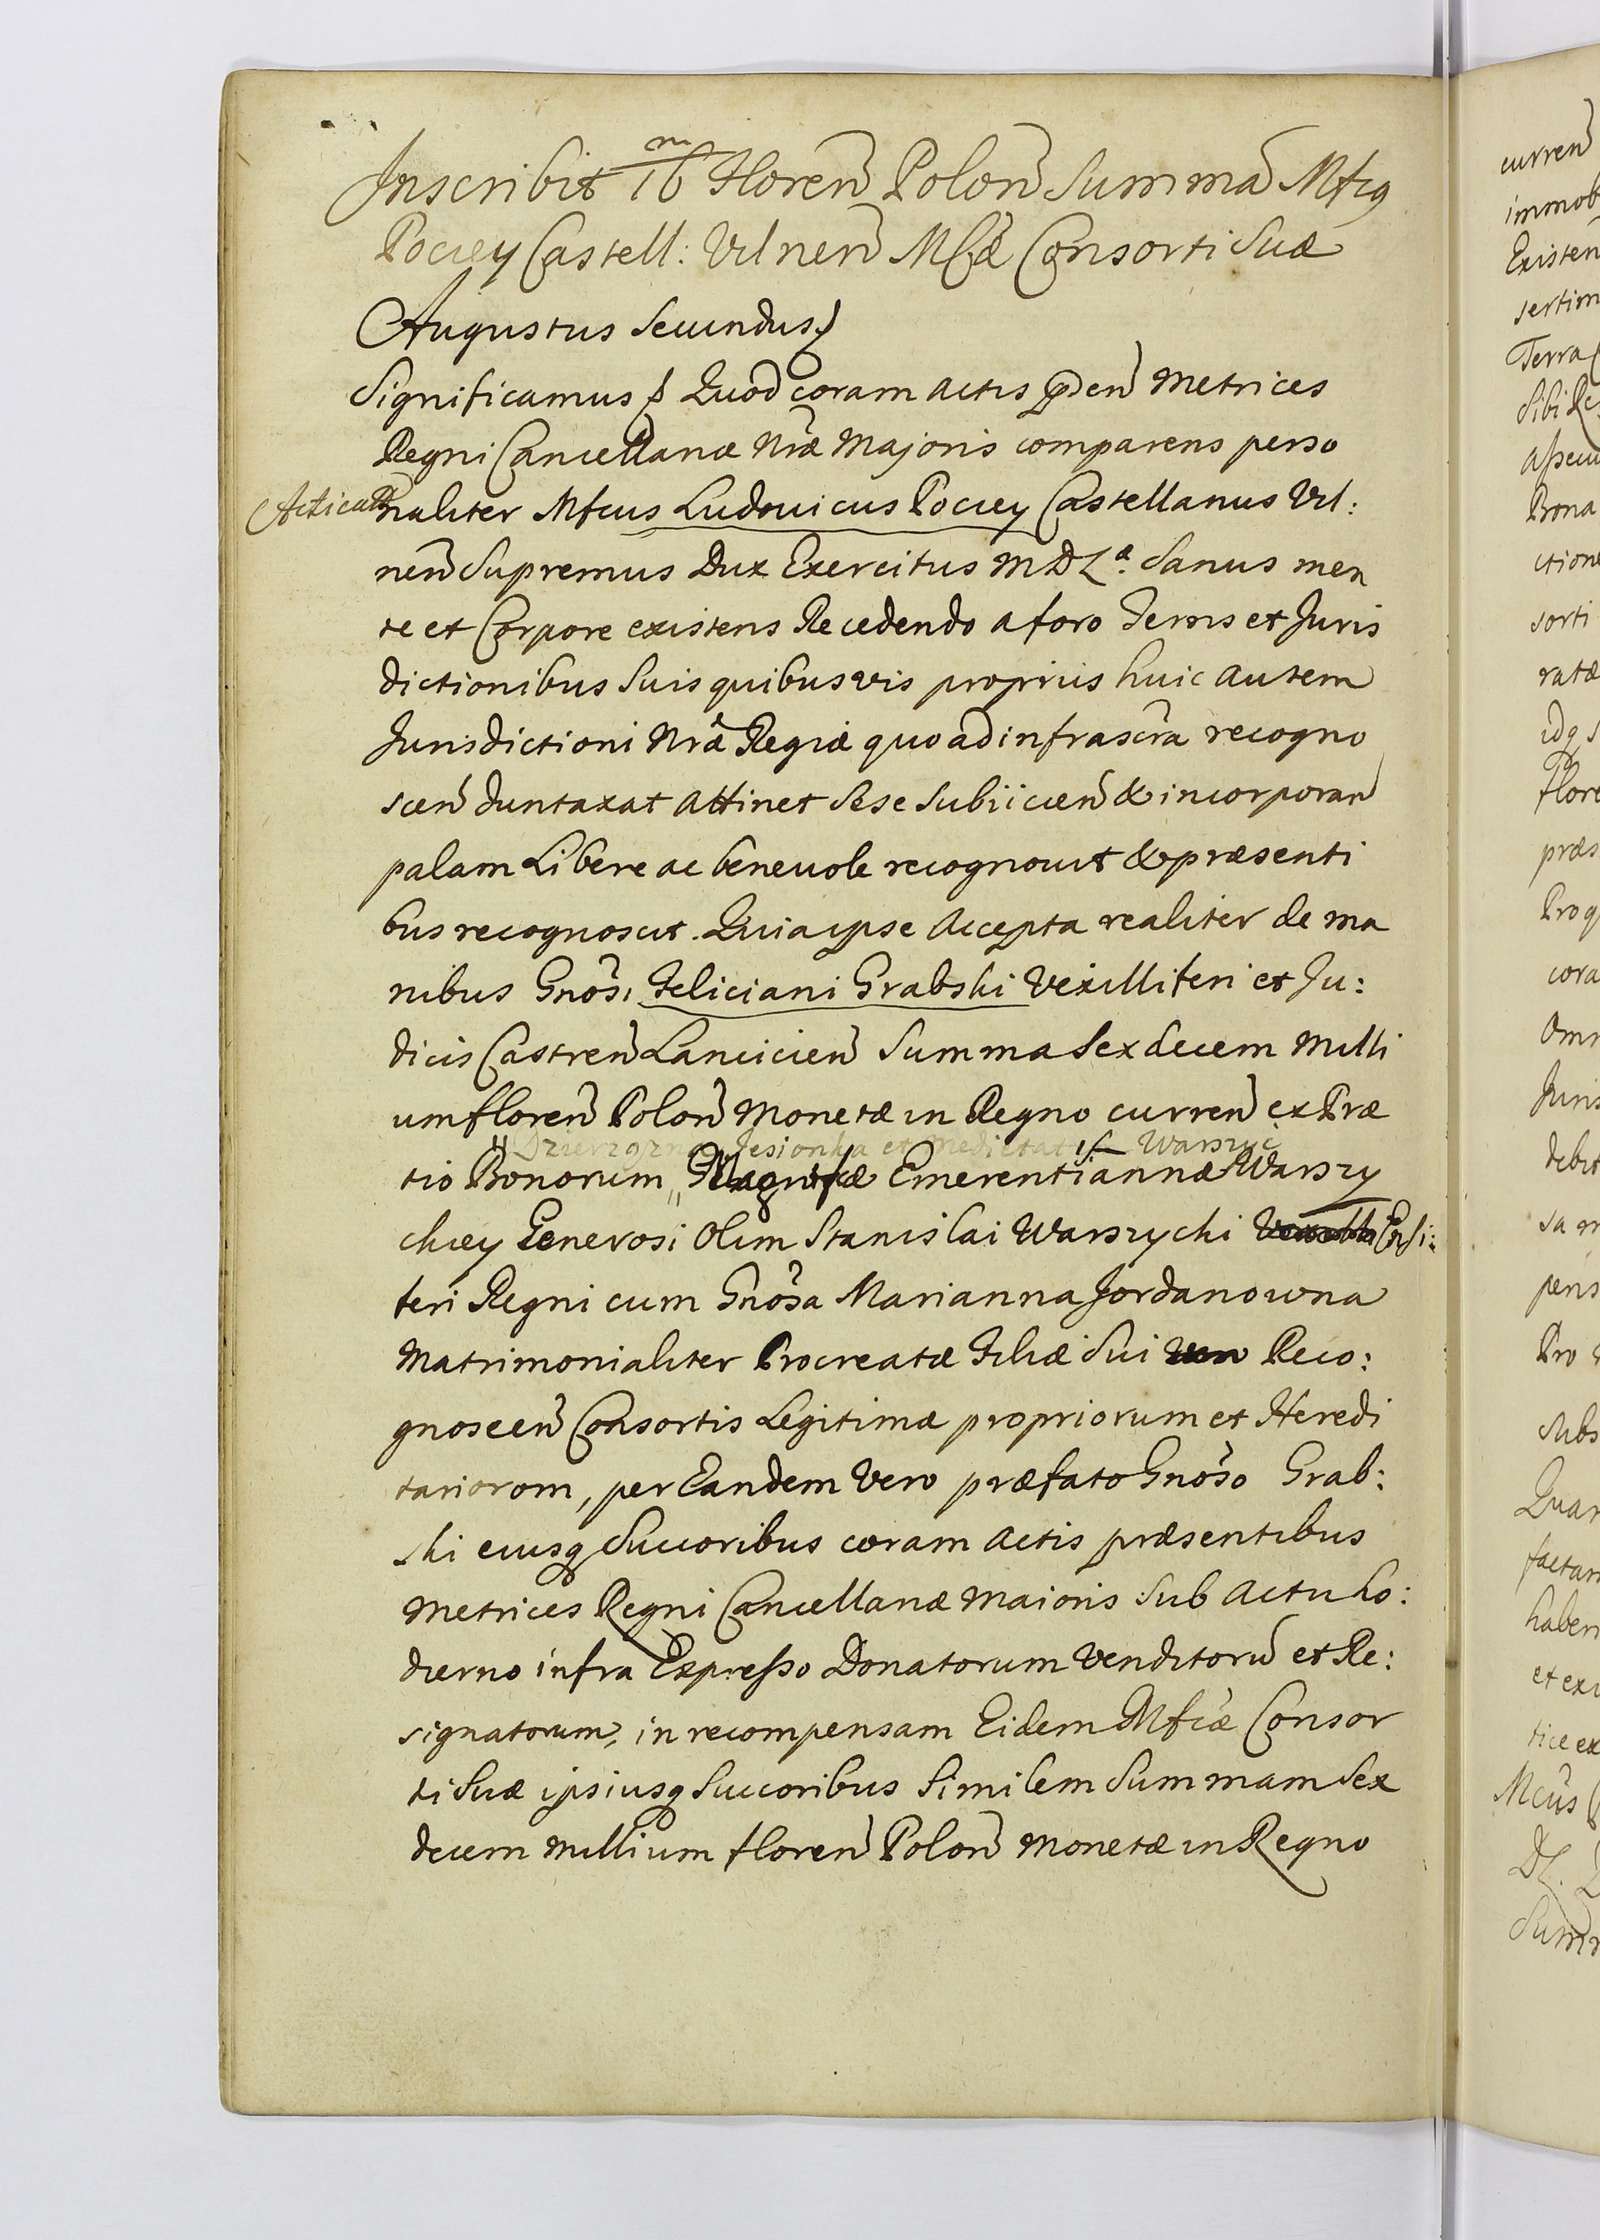 Inscribit 16 m Floren Polon Summã Mfcg
Pociey Castell: Vilnen Mfcæ Consorti Suæ
Augustus Secundus
Significamus Quod coram actis pñden Metrices
Regni Cancellariæ Nræ Majoris comparens perso
Acticat
naliter Mfcus Ludouicus Pociey Castellanus Vil:
nen Supremus Dux Exercitus M D L æ. Sanus men
te et Corpore existens Recedendo a foro Terris et Juris
dictionibus Suis quibusvis proprijs huic autem
Jurisdictioni Nræ Regiæ quoad infrascra recogno
scen duntaxat attinet Sese Subiicien & incorporan
palam Libere ac beneuole recognouit & præsenti
bus recognoscit. Quia ipse Accepta realiter de ma
nibus Gnosi Feliciani Grabski Vexilliferi et Ju:
dicis Castren Lancicien Summa Sexdecem Milli
um floren Polon Monetæ in Regno curren ex Præ
Dzierzązna Jesionka et Medietat Warszyc
tio Bonorum Magnifcæ Emerentiannæ Warszy
ckiey Generosi Olim Stanislai Warszycki Ensi:
feri Regni cum Gnosa Marianna Jordanowna
Matrimonialiter Procreatæ Filiæ Sui Reco:
gnoscen Consortis Legitimæ propriorum et Heredi
tariorom, per Eandem Vero præfato Gnoso Grab:
ski eiusq Succoribus coram actis præsentibus
Metrices Regni Cancellariæ Maioris Sub Actu ho:
dierno infra Expresso Donatorum Venditorũ et Re:
signatorum, in recompensam Eidem Mfcæ Consor
ti Suæ ipsiusq Succoribus Similem Summam Sex
decem Millium floren Polon Monetæ in Regno
curren
immob
Existen
sertim
Terra
Sibi Re
Assecu
Bona
ctione
sorti
ratæ
idq s
flore
præs
Pro q
cora
Omn
Juris
debit
sa m
pens
Pro
Subs
Quar
factam
haben
et exi
tice ex
Mcus
DL.
Summ